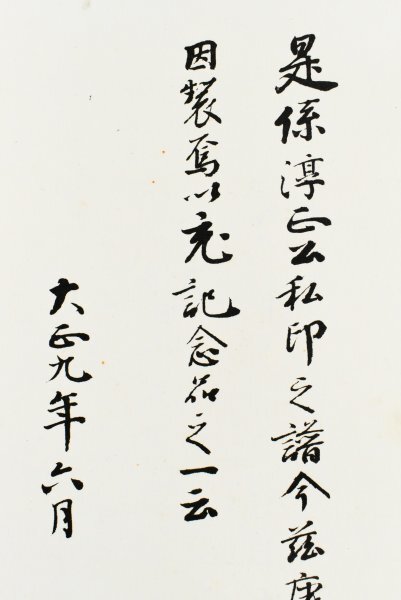 是係淳正公私印之譜今茲
因製焉以充記念品之一云
大正九年六月